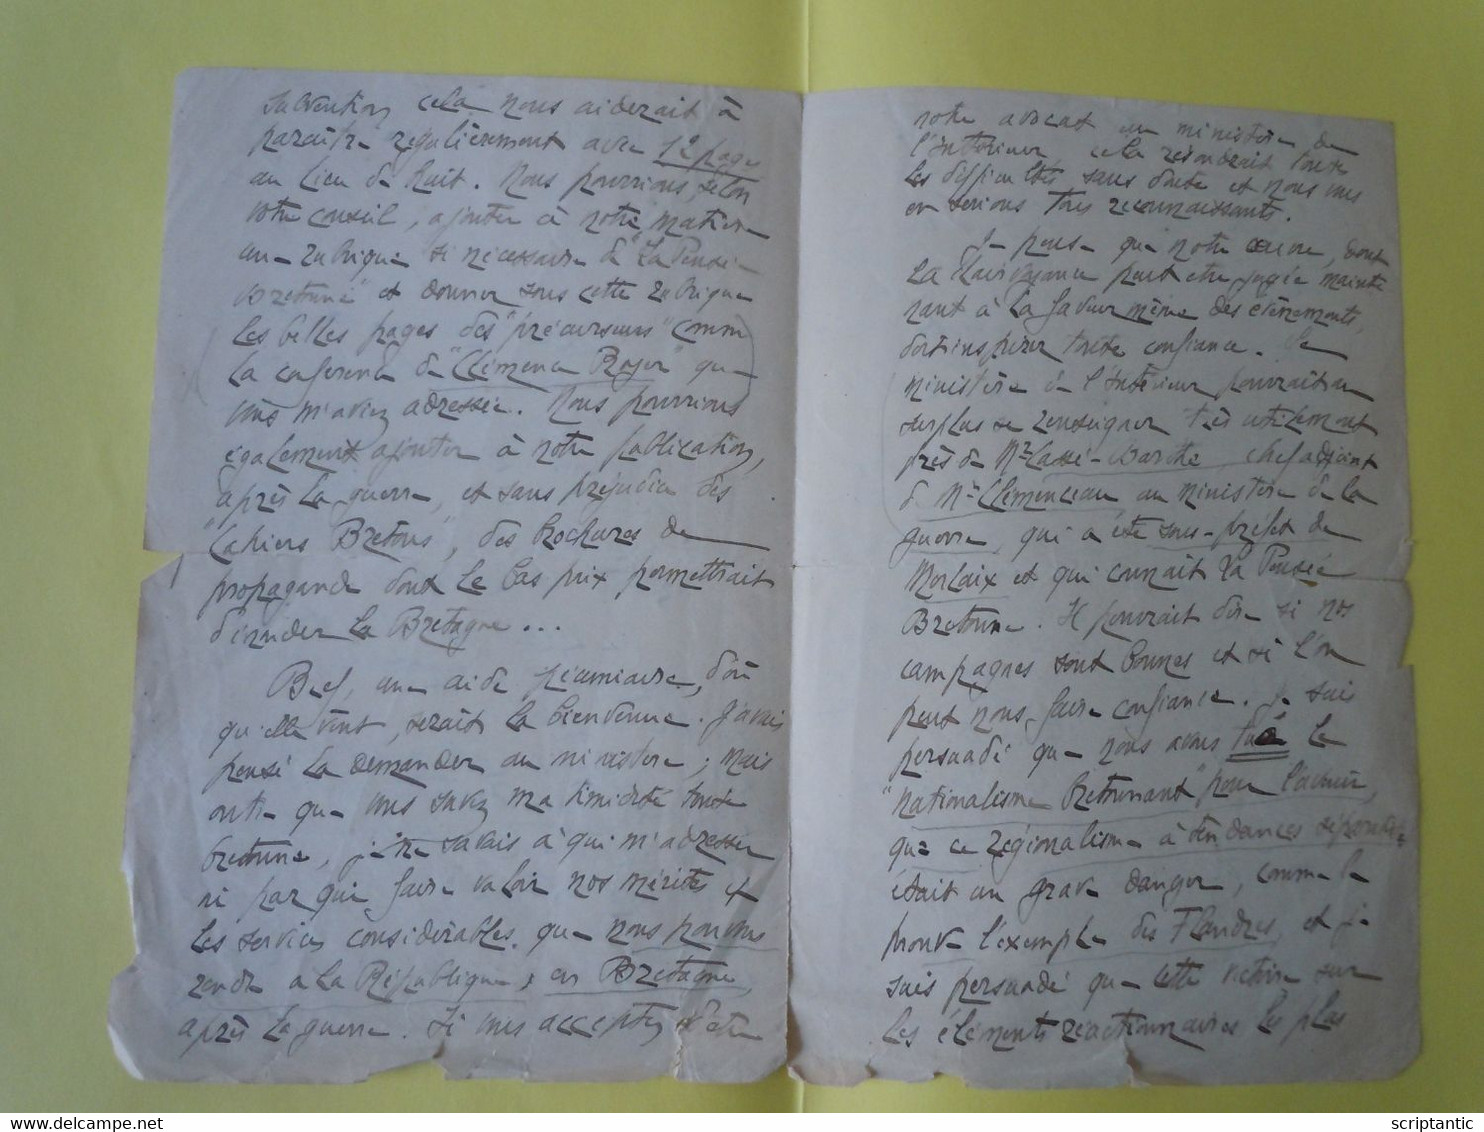 subvention cela nous aiderait à
paraître régulièrement avec 12 pages
au lieu de huit. Nous pourrions, selon
votre conseil, ajouter à notre matière
une rubrique si nécessaire de "La Pensée
Bretonne" et donner sous cette rubrique
les belles pages des "précurseurs" comme
la conférence de "Clémence Royer" que
vous m'aviez adressée. Nous pourrions
également ajouter à notre publication,
après la guerre, et sans préjudice des
"Cahiers Bretons", des brochures de
propagande dont le bas prix permettrait
d'inonder la Bretagne...
Bref, une aide pécuniaire, d'où
qu'elle vint, serait la bienvenue. J'avais
pensé la demander au ministère ; mais
outre que vous savez ma timidité toute
bretonne, je ne savais à qui m'adresser
ni par qui faire valoir nos mérites et
les services considérables que nous pouvons
rendre à la République, en Bretagne,
après la guerre. Si vous acceptez d'être
notre avocat au ministère de
l'Intérieur cela résoudrait toutes
les difficultés sans doute et nous vous
en serions tous reconnaissants.
Je pense que notre œuvre, dont
la clairvoyance peut être jugée mainte
nant à la faveur même des évènements,
doit inspirer toute confiance. Le
ministère de l'Intérieur pourrait au
surplus se renseigner très utilement
près de Mr Cassé-Barthe, chef adjoint
de Mr Clémenceau au ministère de la
guerre, qui a été sous-préfet de
Morlaix et qui connait la Pensée
Bretonne. Il pourrait dire si nos
campagnes sont bonnes et si l'on
peut nous faire confiance. Je suis
persuadé que nous avons tué le
"nationalisme bretonnant" pour l'avenir,
que ce régionalisme à tendances séparatistes
était un grave danger, comme le
prouve l'exemple des Flandres, et je
suis persuadé que cette victoire sur
les éléments réactionnaires les plus
scriptantic